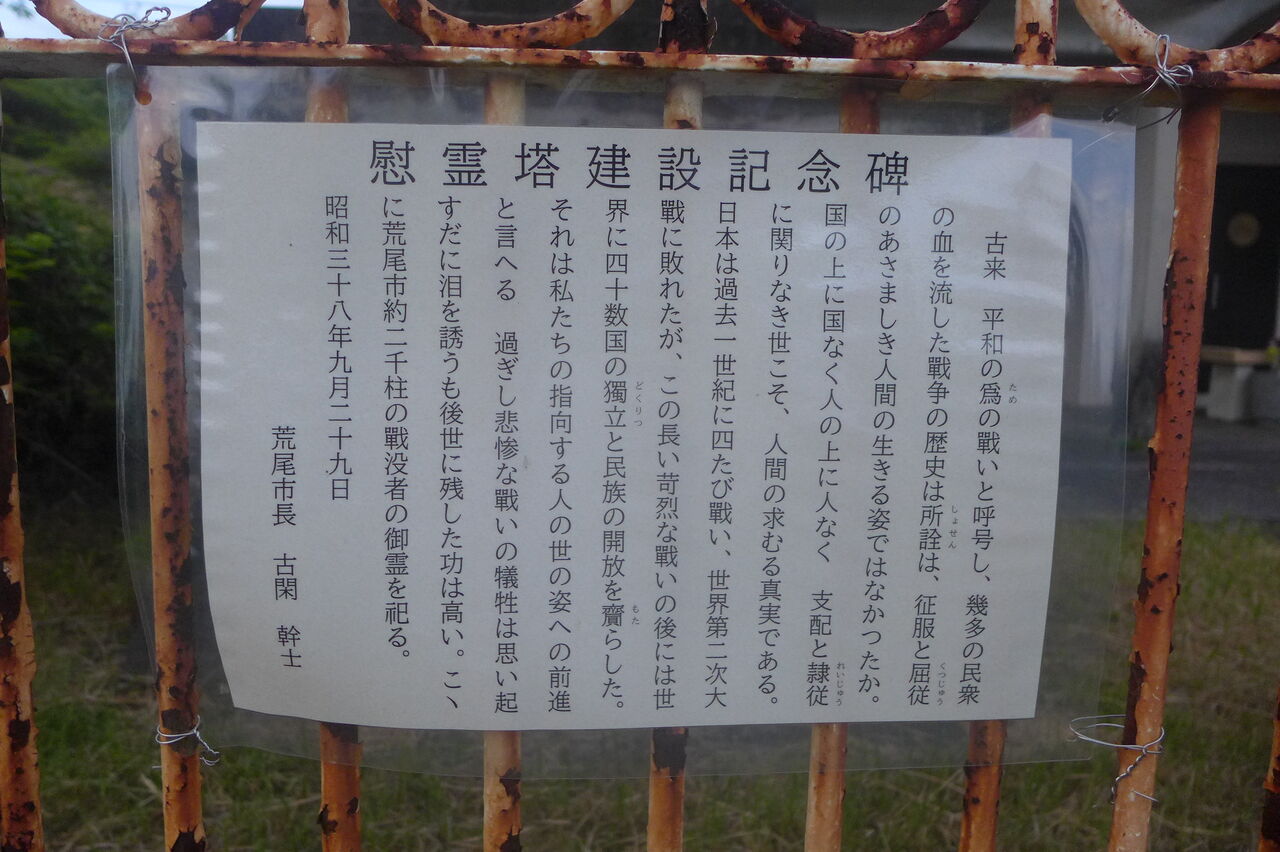 慰霊塔建設記念碑
古来　平和の爲の戰いと呼号し、幾多の民衆
の血を流した戰争の歴史は所詮は、征服と屈従
のあさましき人間の生きる姿ではなかつたか。
国の上に国なく人の上に人なく　支配と隷従
に関りなき世こそ、人間の求むる真実である。
日本は過去一世紀に四たび戰い、世界第二次大
戰に敗れたが、この長い苛烈な戰いの後には世
界に四十数国の獨立と民族の開放を齎らした。
それは私たちの指向する人の世の姿への前進
と言へる　過ぎし悲惨な戰いの犠牲は思い起
すだに泪を誘うも後世に残した功は高い。こゝ
に荒尾市約二千柱の戰没者の御霊を祀る。
昭和三十八年九月二十九日
荒尾市長　古閑　幹士
ため
しょせん
くつじゅう
れいじゅう
どくりつ
もた